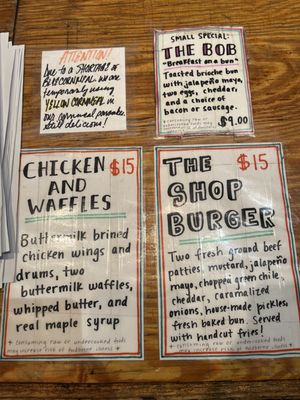 ATTENTION!
Due to a SHORTAGE of
BLUE CORNMEAL, we are
temporarily using
YELLOW CORNMEAL in
our cornmeal pancakes
still delicious!
SMALL SPECIAL:
THE BOB
"Breakfast on a bun"
Toasted brioche bun
with jalapeño mayo,
two eggs, cheddar,
and a choice of
bacon or sausage.
* consuming raw or
undercooked foods
may increase risk of
foodborne illness
$9.00
CHICKEN $15
AND
WAFFLES
Buttermilk brined
chicken wings and
drums, two
buttermilk waffles,
whipped butter, and
real maple syrup
* consuming raw or undercooked foods
may increase risk of foodborne illness *
THE $15
SHOP
BURGER
Two fresh ground beef
patties, mustard, jalapeño
mayo, chopped green chile,
cheddar, caramalized
onions, house-made pickles,
fresh baked bun. Served
with handcut fries!
* consuming raw or undercooked foods
may increase risk of foodborne illness *